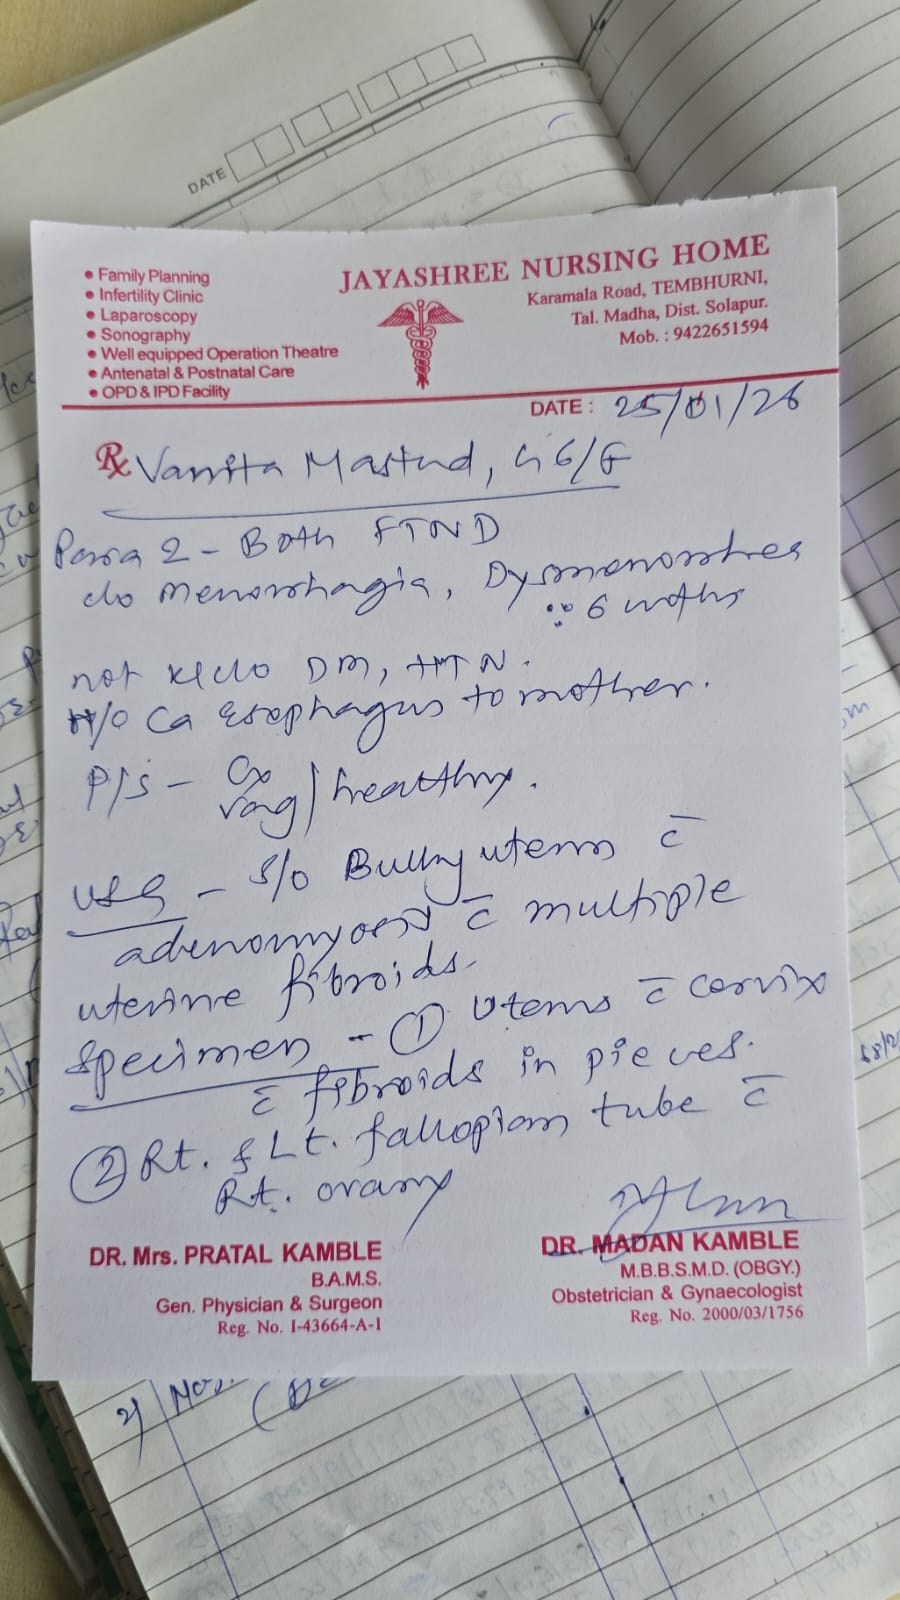 DATE
• Family Planning
• Infertility Clinic
• Laparoscopy
• Sonography
• Well equipped Operation Theatre
• Antenatal & Postnatal Care
• OPD & IPD Facility
JAYASHREE NURSING HOME
Karamala Road, TEMBHURNI,
Tal. Madha, Dist. Solapur.
Mob. : 9422651594
DATE : 25/01/26
Rx Vanita Mastud, 46/F
Para 2 - Both FTND
c/o menorrhagia, Dysmenorrhea
∵ 6 mnths
not k/c/o DM, HTN.
H/O Ca Esophagus to mother.
P/S - Cx
Vag / healthy.
USG - S/O Bulky uterus c̄
adenomyosis c̄ multiple
uterine fibroids.
Specimen - ① Uterus c̄ cervix
c̄ fibroids in pieces.
② Rt. & Lt. fallopian tube c̄
Rt. ovary
DR. Mrs. PRATAL KAMBLE
B.A.M.S.
Gen. Physician & Surgeon
Reg. No. I-43664-A-1
DR. MADAN KAMBLE
M.B.B.S.M.D. (OBGY.)
Obstetrician & Gynaecologist
Reg. No. 2000/03/1756